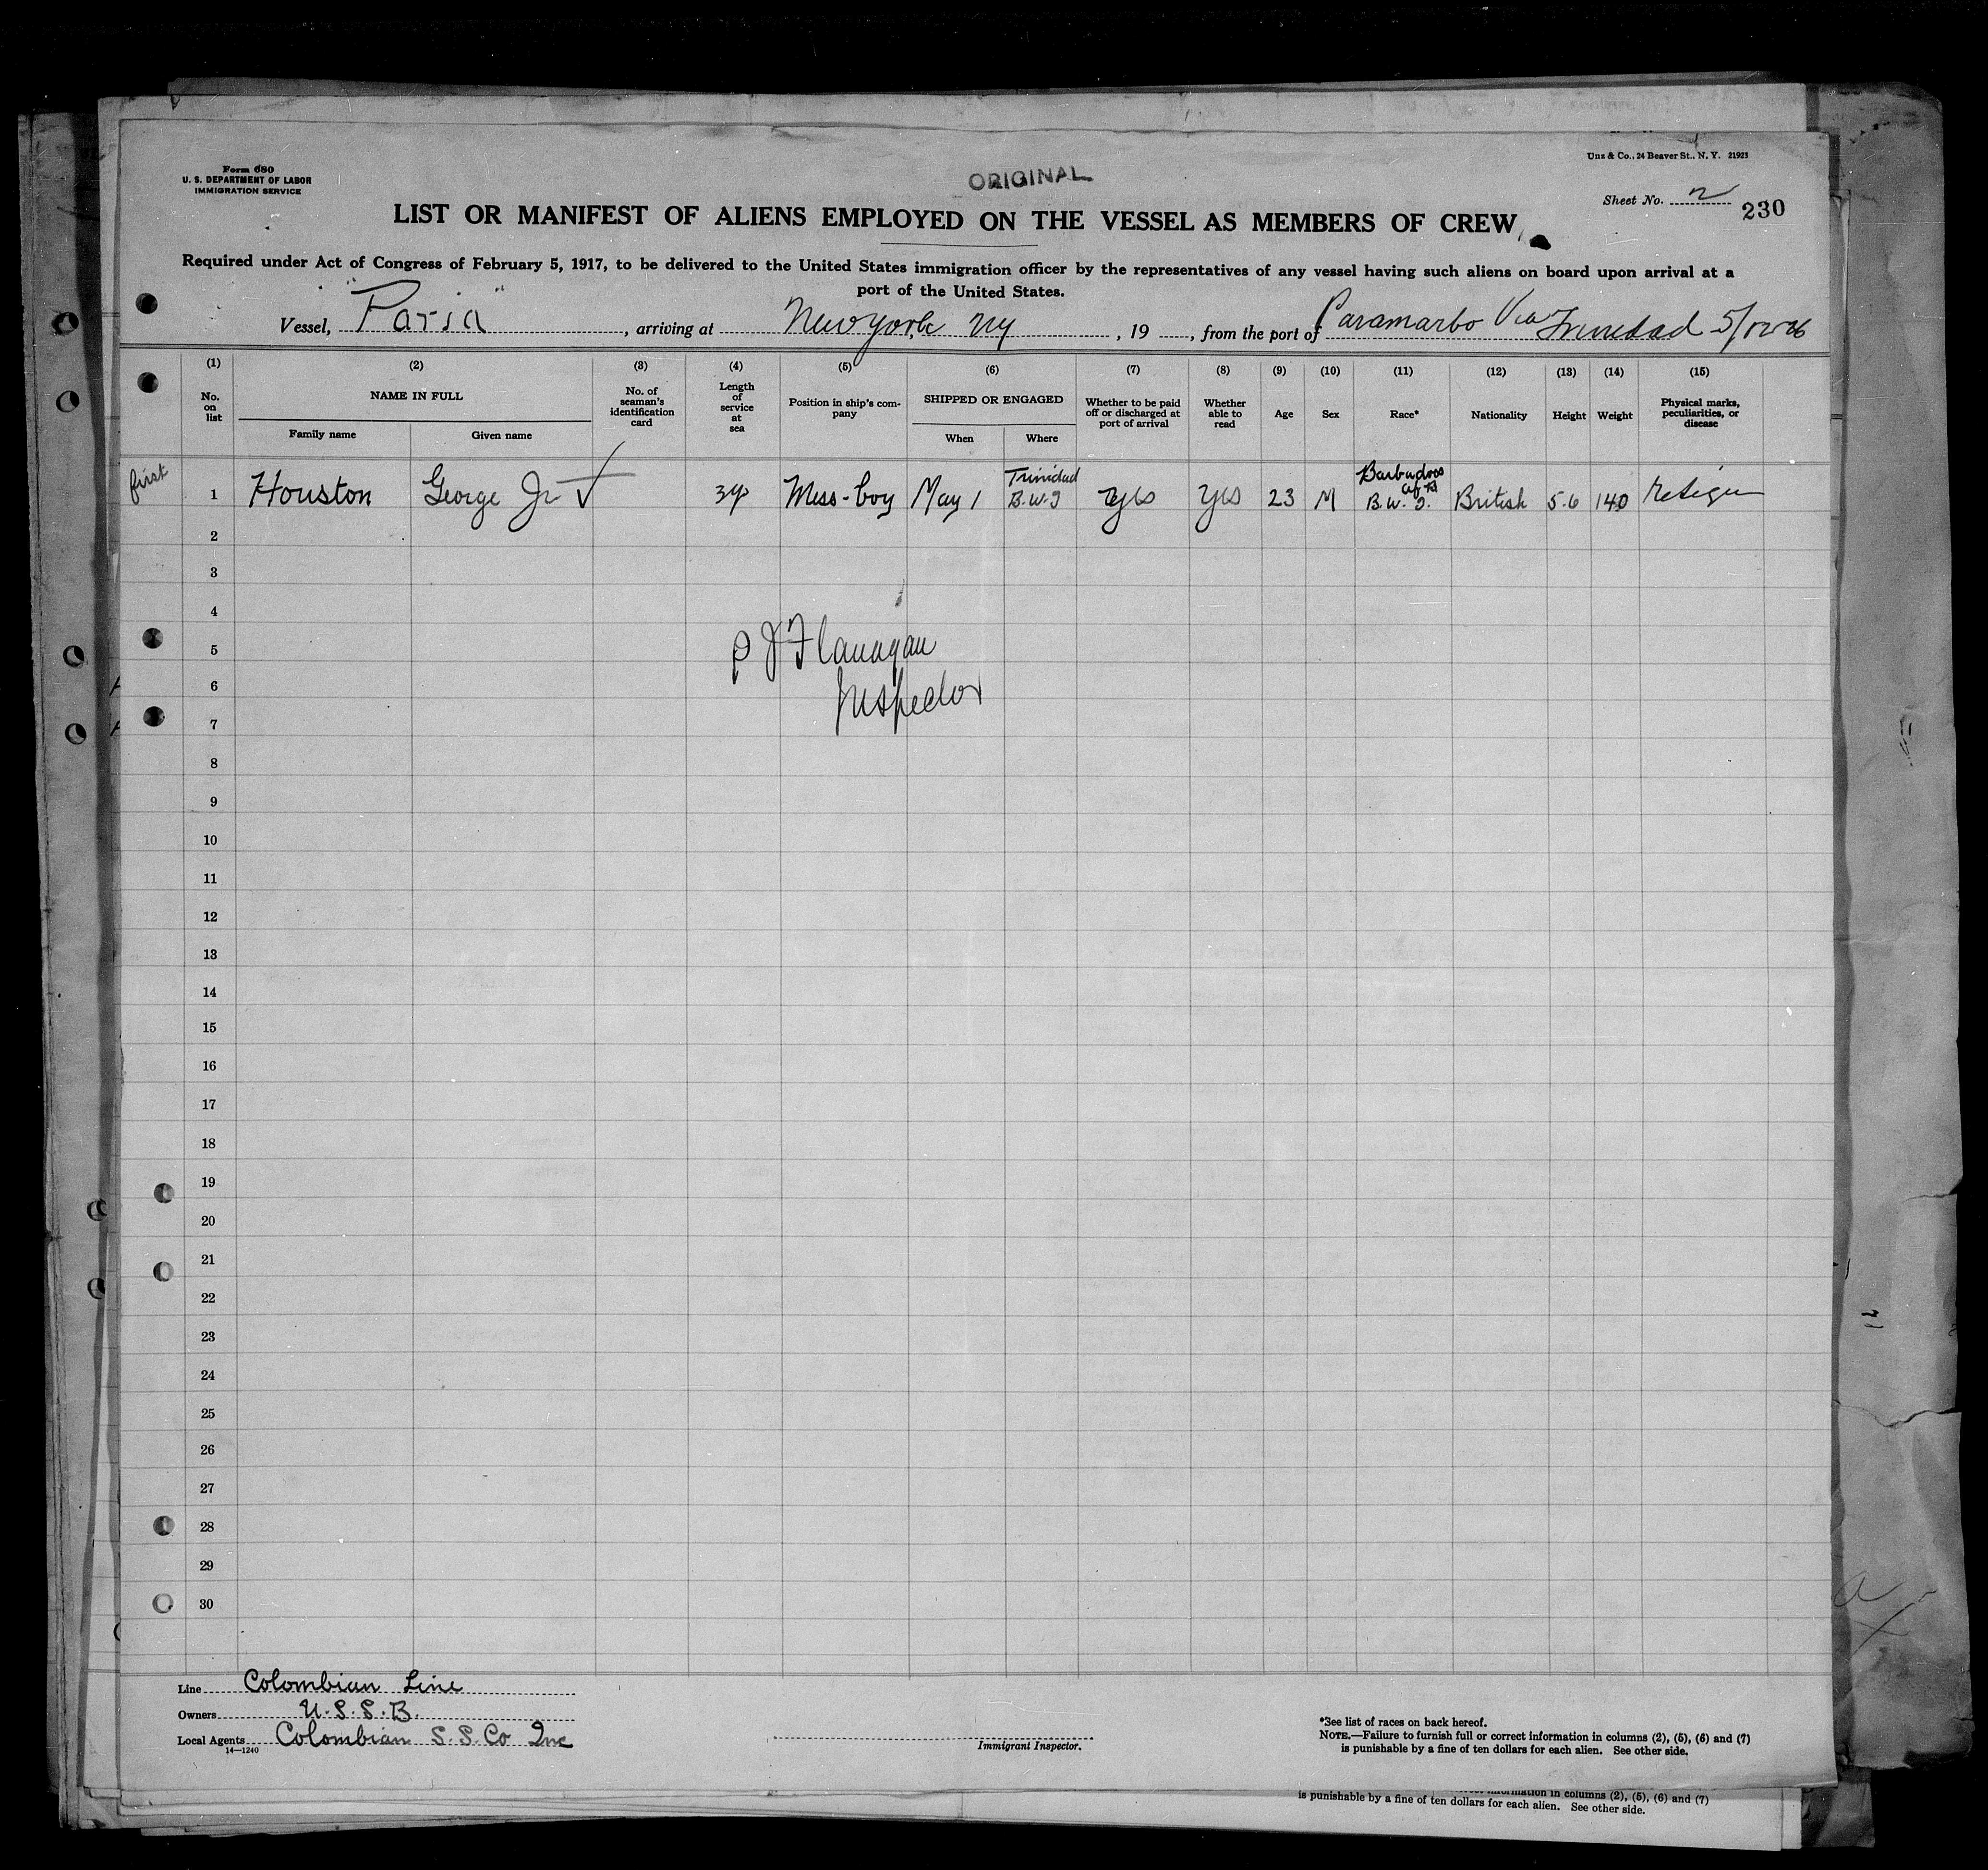 Form 680
U. S. DEPARTMENT OF LABOR
IMMIGRATION SERVICE
ORIGINAL
Unz & Co., 24 Beaver St., N. Y. 21923
Sheet No. 2
230
LIST OR MANIFEST OF ALIENS EMPLOYED ON THE VESSEL AS MEMBERS OF CREW
Required under Act of Congress of February 5, 1917, to be delivered to the United States immigration officer by the representatives of any vessel having such aliens on board upon arrival at a
port of the United States.
Vessel, "Paria", arriving at New York NY, 19, from the port of Paramarbo Via Trinidad 5/12/26
(1) (2) (3) (4) (5) (6) (7) (8) (9) (10) (11) (12) (13) (14) (15)
No. on list
NAME IN FULL
Family name
Given name
No. of seaman's identification card
Length of service at sea
Position in ship's company
SHIPPED OR ENGAGED
When
Where
Whether to be paid off or discharged at port of arrival
Whether able to read
Age
Sex
Race*
Nationality
Height
Weight
Physical marks, peculiarities, or disease
first 1 Houston George Jr 3y Mess-boy May 1 Trinidad B.W.I yes yes 23 M Barbadoos B.W.I. British 5.6 140
2
3
4
5
6
7
8
9
10
11
12
13
14
15
16
17
18
19
20
21
22
23
24
25
26
27
28
29
30
P J Flanagan
Inspector
Line Colombian Line
Owners U.S.S.B.
Local Agents Colombian S.S.Co Inc
14—1240
Immigrant Inspector.
*See list of races on back hereof.
NOTE.—Failure to furnish full or correct information in columns (2), (5), (6) and (7)
is punishable by a fine of ten dollars for each alien. See other side.
information in columns (2), (5), (6) and (7)
is punishable by a fine of ten dollars for each alien. See other side.